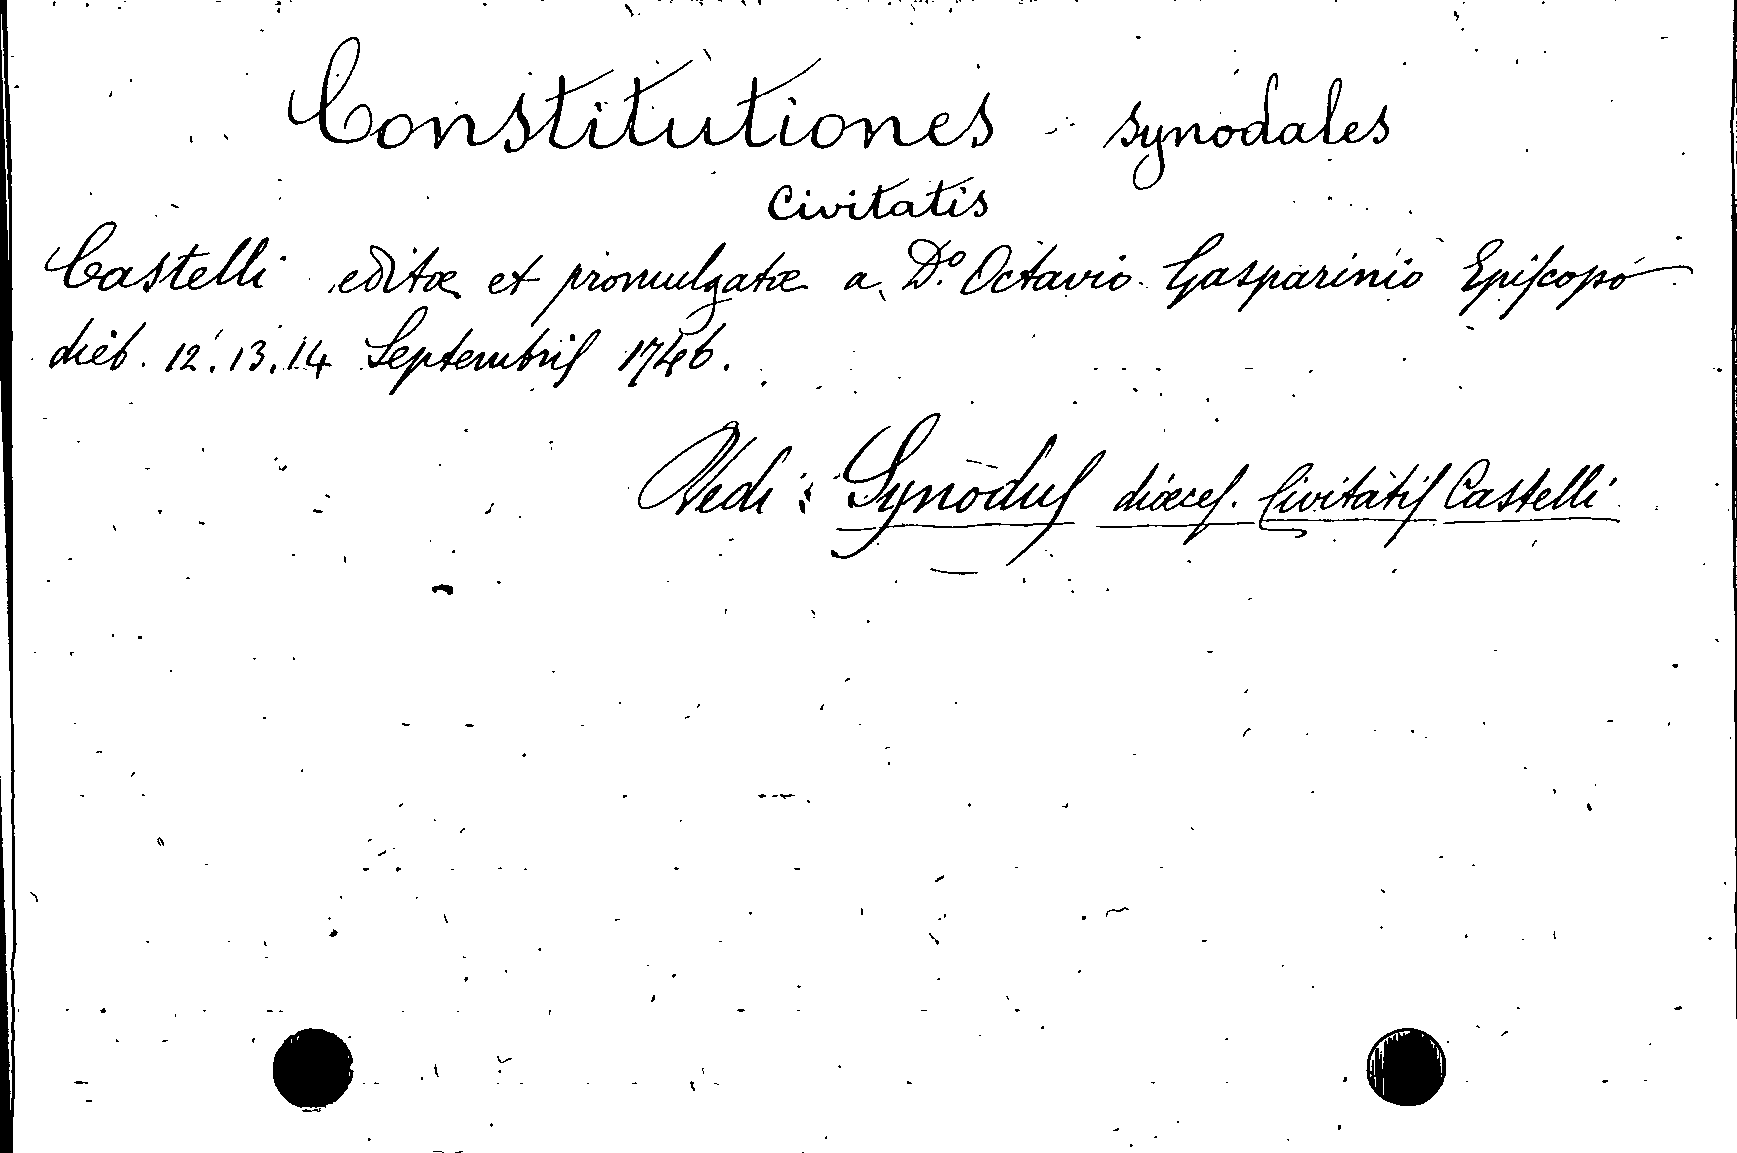 Constitutiones synodales
Civitatis
Castelli editæ et promulgatæ a D.º Octavio Gasparinio Epiſcopo
dieb. 12. 13. 14 Septembriſ 1746.
Vedi: Synoduſ diœceſ. Civitatiſ Castelli